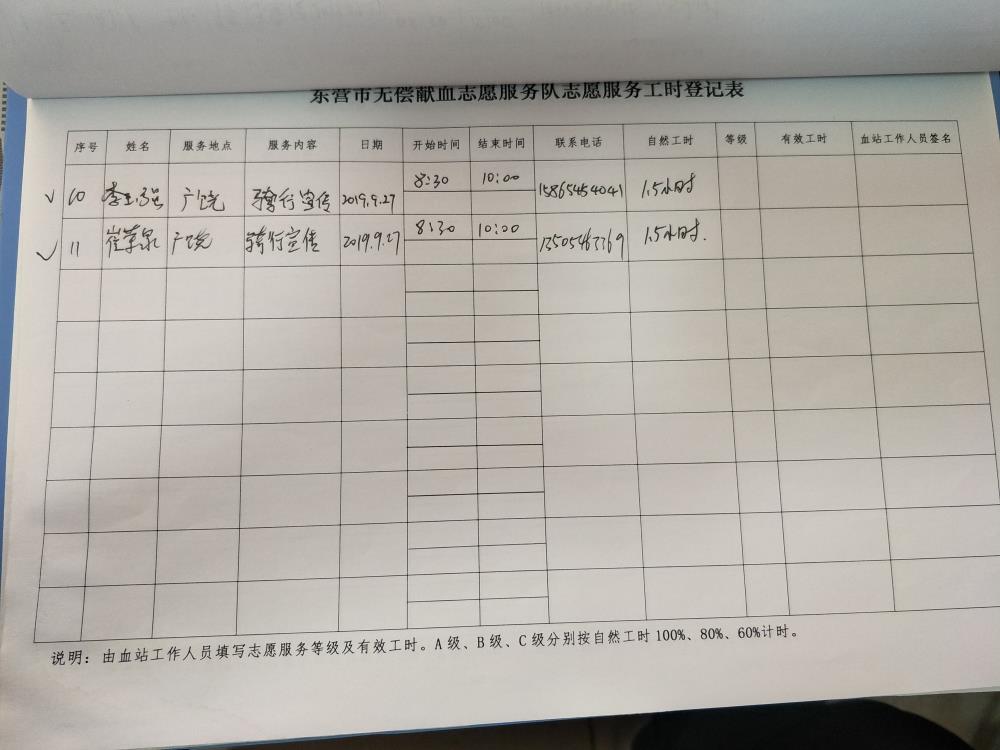 东营市无偿献血志愿服务队志愿服务工时登记表
序号 姓名 服务地点 服务内容 日期 开始时间 结束时间 联系电话 自然工时 等级 有效工时 血站工作人员签名
10 李玉强 广饶 骑行宣传 2019.9.27 8:30 10:00 15865454041 1.5小时
11 崔 广饶 骑行宣传 2019.9.27 8:30 10:00 1.5小时.
说明：由血站工作人员填写志愿服务等级及有效工时。A级、B级、C级分别按自然工时100%、80%、60%计时。